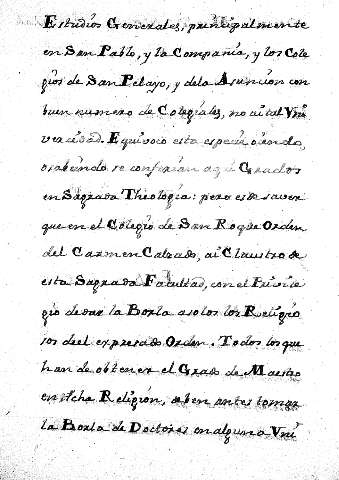 Estudios Generales, principalmente
en San Pablo, y la Compañia, y los Cole
gios de San Pelayo, y dela Asuncion con
buen numero de Colegiales, no ai tal Vni
versidad. Equivoco esta especie oiendo,
o sabiendo se conferian aqui Grados
en Sagrada Theologia: pero es de saver
que en el Colegio de San Roque Orden
del Carmen Calzado, ai Claustro de
esta Sagrada Facultad, con el Privile
gio de dar la Borla a solos los Religio
sos de el expresado Orden. Todos los que
han de obtener el Grado de Maestro
en dicha Religion, deben antes tomar
la Borla de Doctores en alguna Vni